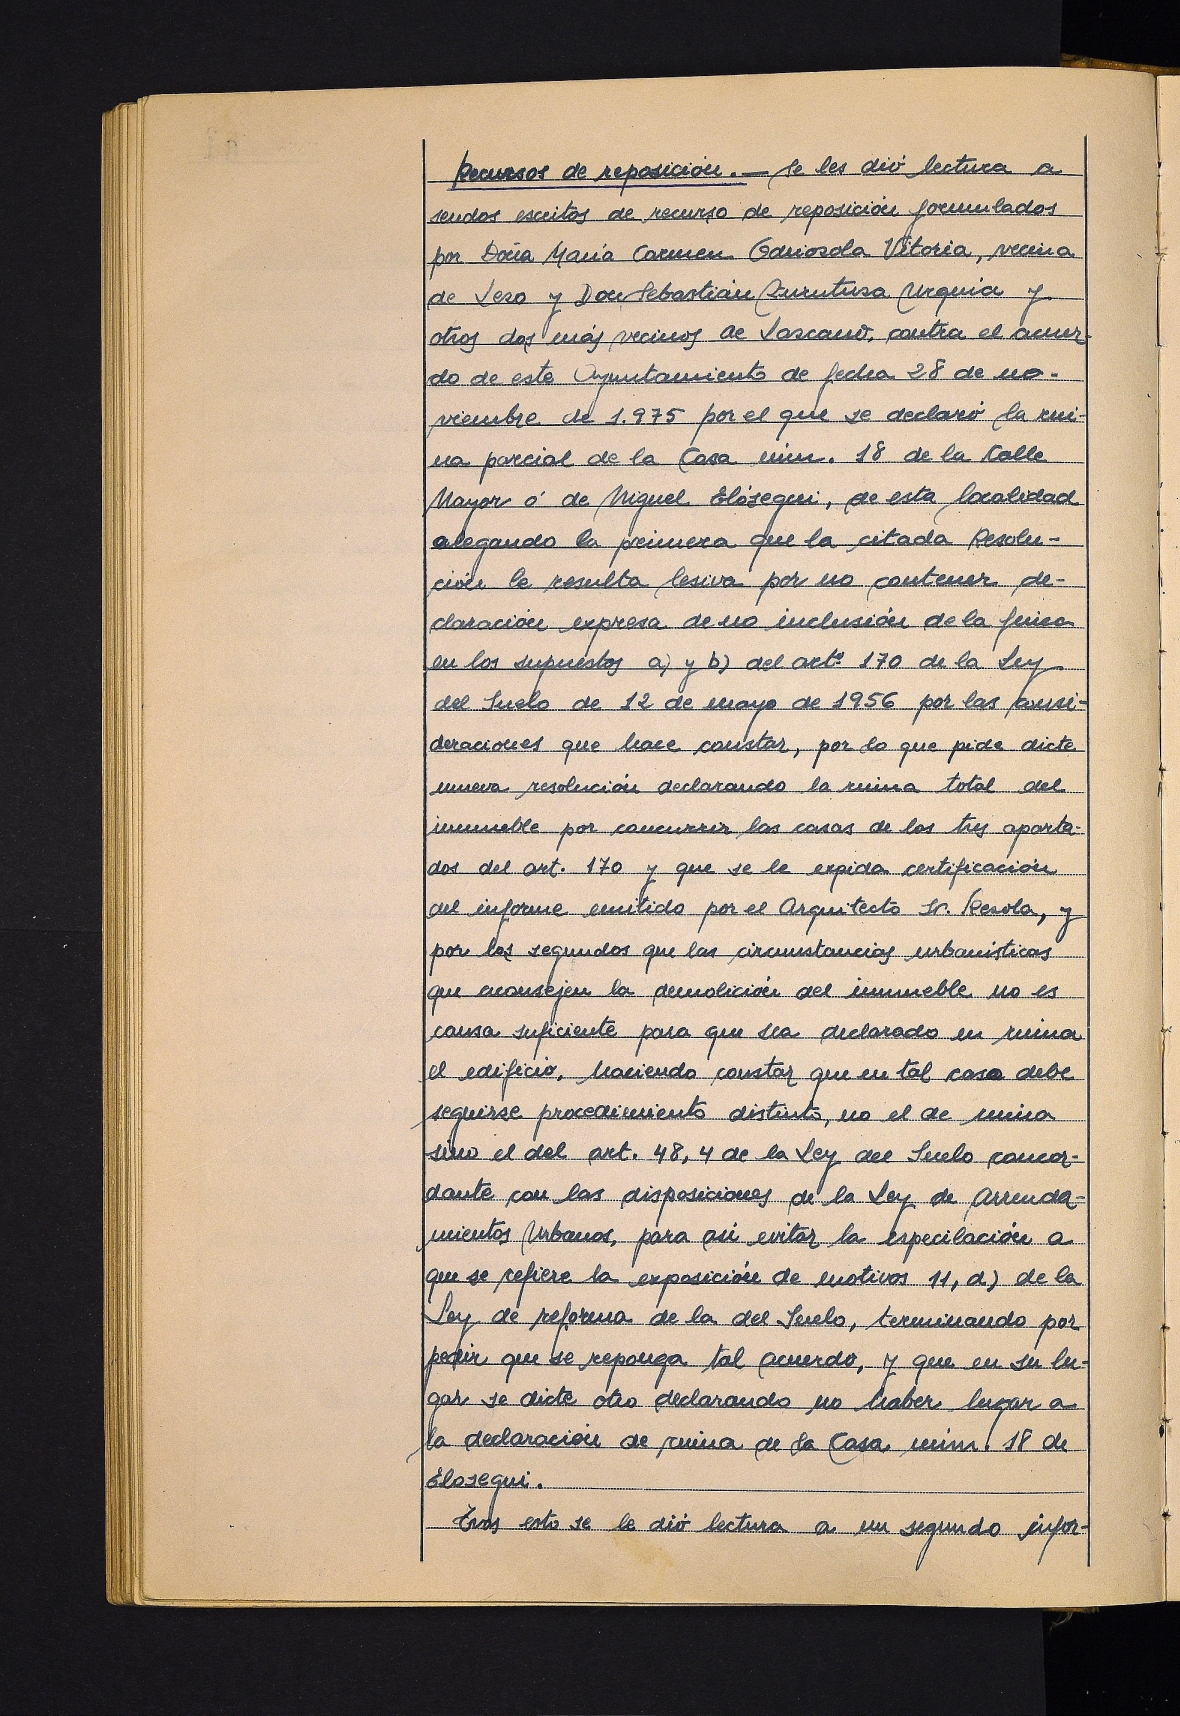 Recursos de reposición. — Se les dió lectura a
sendos escritos de recurso de reposición formulados
por Doña María Carmen Odriosola Vitoria, vecina
de Lezo y Don Sebastián Zurutusa Urquia y
otros dos más vecinos de Lascano, contra el acuer-
do de este Ayuntamiento de fecha 28 de no-
viembre de 1.975 por el que se declaró la rui-
na parcial de la Casa núm. 18 de la Calle
Mayor ó de Miguel Elósegui, de esta localidad
alegando la primera que la citada Resolu-
ción le resulta lesiva por no contener de-
claración expresa de no inclusión de la finca
en los supuestos a) y b) del artº 170 de la Ley
del Suelo de 12 de mayo de 1956 por las consi-
deraciones que hace constar, por lo que pide dicte
nueva resolución declarando la ruina total del
inmueble por concurrir las casas de los tres aparta-
dos del art. 170 y que se le expida certificación
del informe emitido por el Arquitecto Sr. Resola, y
por los segundos que las circunstancias urbanísticas
que aconsejen la demolición del inmueble no es
causa suficiente para que sea declarado en ruina
el edificio, haciendo constar que en tal caso debe
seguirse procedimiento distinto, no el de ruina
sino el del art. 48, 4 de la Ley del Suelo concor-
dante con las disposiciones de la Ley de Arrenda-
mientos Urbanos, para así evitar la especilación a
que se refiere la exposición de motivos 11, d) de la
Ley de reforma de la del Suelo, terminando por
pedir que se reponga tal acuerdo, y que en su lu-
gar se dicte otro declarando no haber lugar a
la declaración de ruina de la Casa núm. 18 de
Elosegui.
Tras esto se le dió lectura a un segundo infor-